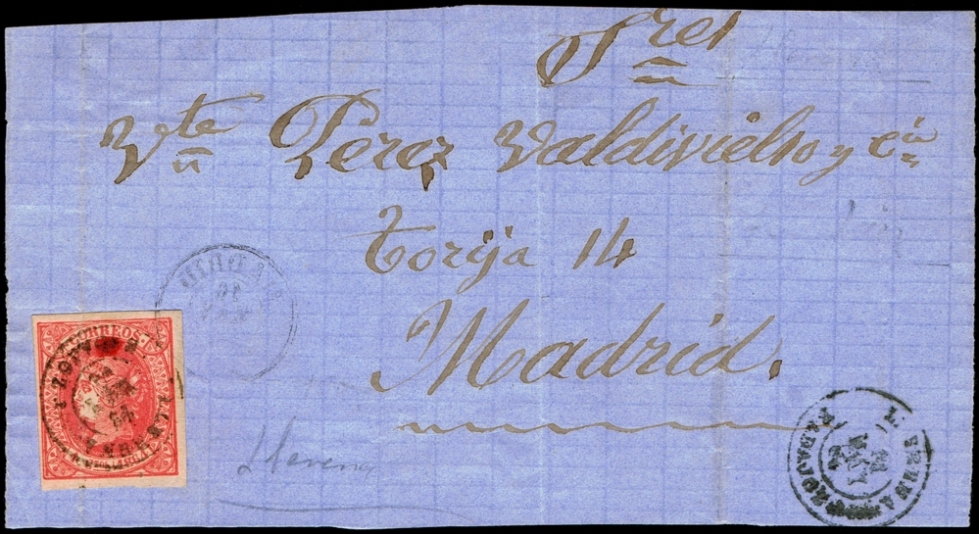 Sres
Vte Perez Valdivielso y Cia
Torija 14
Madrid.
CORREOS
LLERENA
BADAJOZ
Llerena